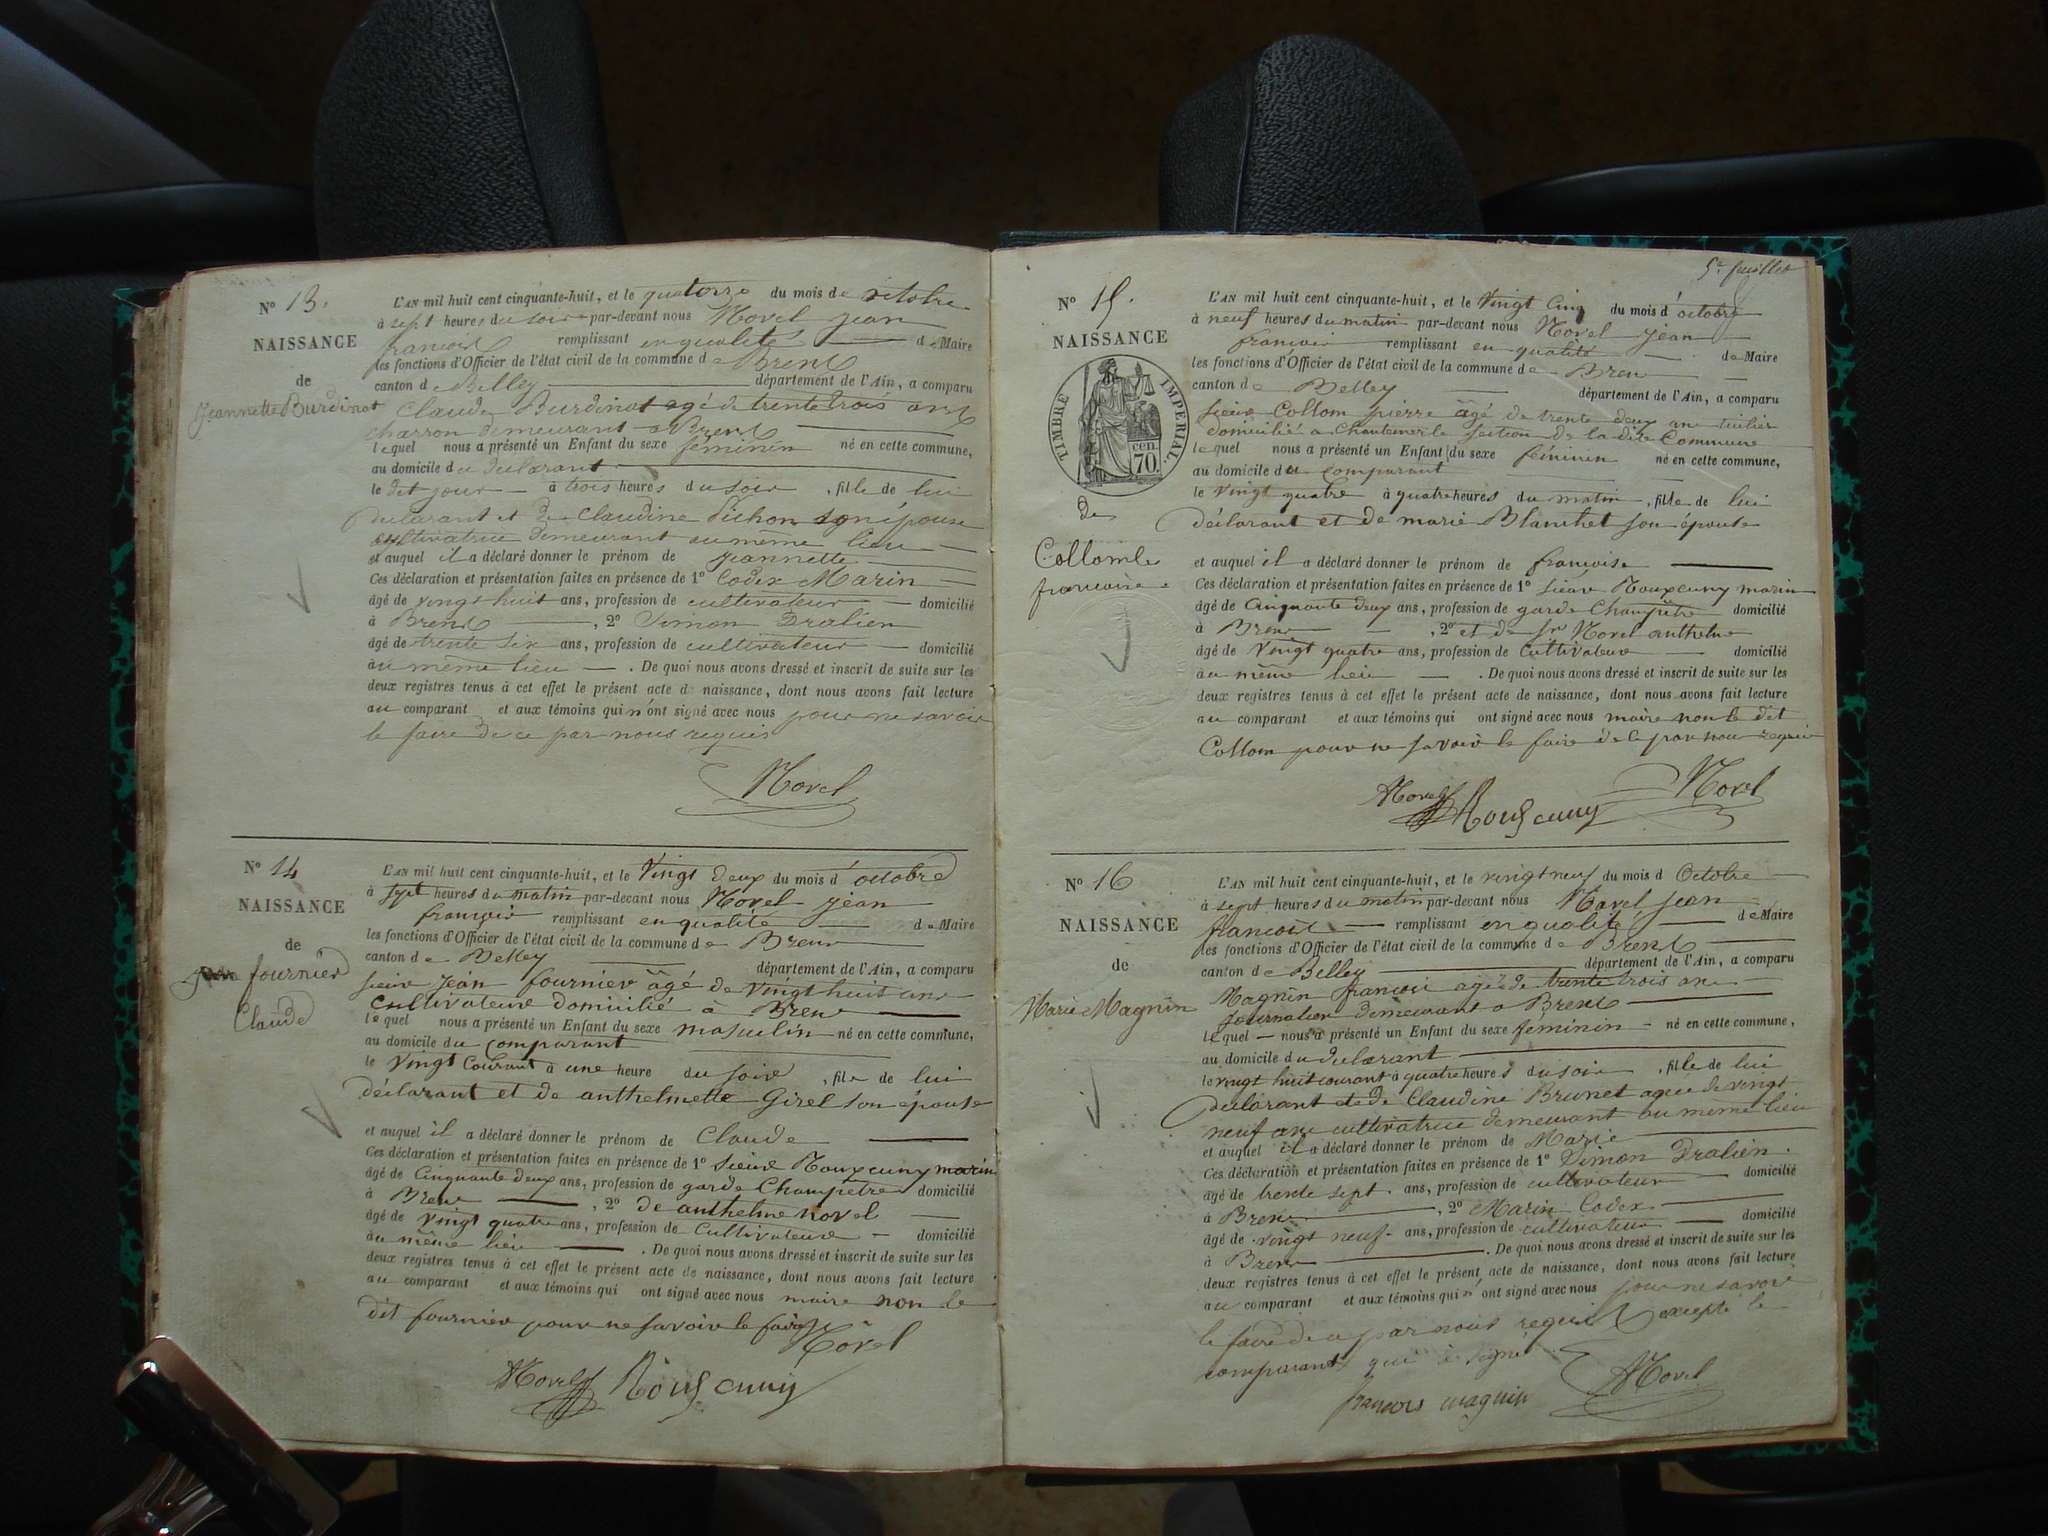 N° 13.
NAISSANCE
de
Jeannette Burdinot
L'AN mil huit cent cinquante-huit, et le quatorze du mois de octobre
à sept heures du soir par-devant nous Novel jean
francois remplissant en qualité de Maire
les fonctions d'Officier de l'état civil de la commune de Brens
canton de Belley département de l'Ain, a comparu
Claude Burdinot agé de trente trois ans
charron demeurant a Brens
lequel nous a présenté un Enfant du sexe féminin né en cette commune,
au domicile du declarant
le dit jour à trois heures du soir, fille de lui
declarant et de Claudine Pichon son épouse
cultivatrice demeurant au même lieu
et auquel il a déclaré donner le prénom de Jeannette
Ces déclaration et présentation faites en présence de 1° Codex Marin
âgé de vingt huit ans, profession de cultivateur domicilié
à Brens, 2° Simon Dralien
âgé de trente six ans, profession de cultivateur domicilié
au même lieu. De quoi nous avons dressé et inscrit de suite sur les
deux registres tenus à cet effet le présent acte de naissance, dont nous avons fait lecture
au comparant et aux témoins qui n'ont signé avec nous pour ne savoir
le faire de ce par nous requis
Novel
N° 14
NAISSANCE
de
fournier
Claude
L'AN mil huit cent cinquante-huit, et le Vingt deux du mois d'octobre
à sept heures du matin par-devant nous Novel jean
françois remplissant en qualité de Maire
les fonctions d'Officier de l'état civil de la commune de Bren
canton de Belley département de l'Ain, a comparu
sieur jean fournier âgé de vingt huit ans
cultivateur domicilié à Bren
lequel nous a présenté un Enfant du sexe masculin né en cette commune,
au domicile du comparant
le vingt courant à une heure du soir, fils de lui
déclarant et de anthelmette Girel son épouse
et auquel il a déclaré donner le prénom de Claude
Ces déclaration et présentation faites en présence de 1° sieur Rouxcuny marin
âgé de Cinquante deux ans, profession de garde Champêtre domicilié
à Bren, 2° de anthelme novel
âgé de vingt quatre ans, profession de Cultivateur domicilié
au même lieu. De quoi nous avons dressé et inscrit de suite sur les
deux registres tenus à cet effet le présent acte de naissance, dont nous avons fait lecture
au comparant et aux témoins qui ont signé avec nous maire non le
dit fournier pour ne savoir le faire
Novel
ANovel Rouxcuny
5e feuillet
N° 15.
NAISSANCE
TIMBRE IMPÉRIAL.
70 cen.
de
Collomb
francoise
L'AN mil huit cent cinquante-huit, et le Vingt Cinq du mois d'octobre
à neuf heures du matin par-devant nous Novel jean
françois remplissant en qualité de Maire
les fonctions d'Officier de l'état civil de la commune de Bren
canton de Belley département de l'Ain, a comparu
sieur Collom pierre âgé de trente deux ans tuilier
domicilié a Chantemerle section de la dite Commune
lequel nous a présenté un Enfant du sexe féminin né en cette commune,
au domicile du comparant
le vingt quatre à quatre heures du matin, fille de lui
déclarant et de marie Blanchet son épouse
et auquel il a déclaré donner le prénom de françoise
Ces déclaration et présentation faites en présence de 1° sieur Rouxcuny marin
âgé de Cinquante deux ans, profession de garde Champêtre domicilié
à Bren, 2° et de sr Novel anthelme
âgé de Vingt quatre ans, profession de Cultivateur domicilié
au même lieu. De quoi nous avons dressé et inscrit de suite sur les
deux registres tenus à cet effet le présent acte de naissance, dont nous avons fait lecture
au comparant et aux témoins qui ont signé avec nous maire non le dit
Collom pour ne savoir le faire de ce par nous requis
ANovel Rouxcuny Novel
N° 16
NAISSANCE
de
Marie Magnin
L'AN mil huit cent cinquante-huit, et le vingt neuf du mois d Octobre
à sept heures du matin par-devant nous Novel jean
francois remplissant en qualité de Maire
les fonctions d'Officier de l'état civil de la commune de Brens
canton de Belley département de l'Ain, a comparu
Magnin francois agé de trente trois ans
journalier demeurant a Brens
lequel nous a présenté un Enfant du sexe feminin né en cette commune,
au domicile du declarant
le vingt huit courant à quatre heures du soir, fille de lui
declarant et de Claudine Brunet agée de vingt
neuf ans cultivatrice demeurant au même lieu
et auquel il a déclaré donner le prénom de Marie
Ces déclaration et présentation faites en présence de 1° Simon Dralien.
âgé de trente sept ans, profession de cultivateur domicilié
à Brens, 2° Marin Codex
âgé de vingt neuf ans, profession de cultivateur domicilié
à Brens. De quoi nous avons dressé et inscrit de suite sur les
deux registres tenus à cet effet le présent acte de naissance, dont nous avons fait lecture
au comparant et aux témoins qui n'ont signé avec nous pour ne savoir
le faire de ce par nous requis excepté le
comparant qui a signé
francois magnin Novel